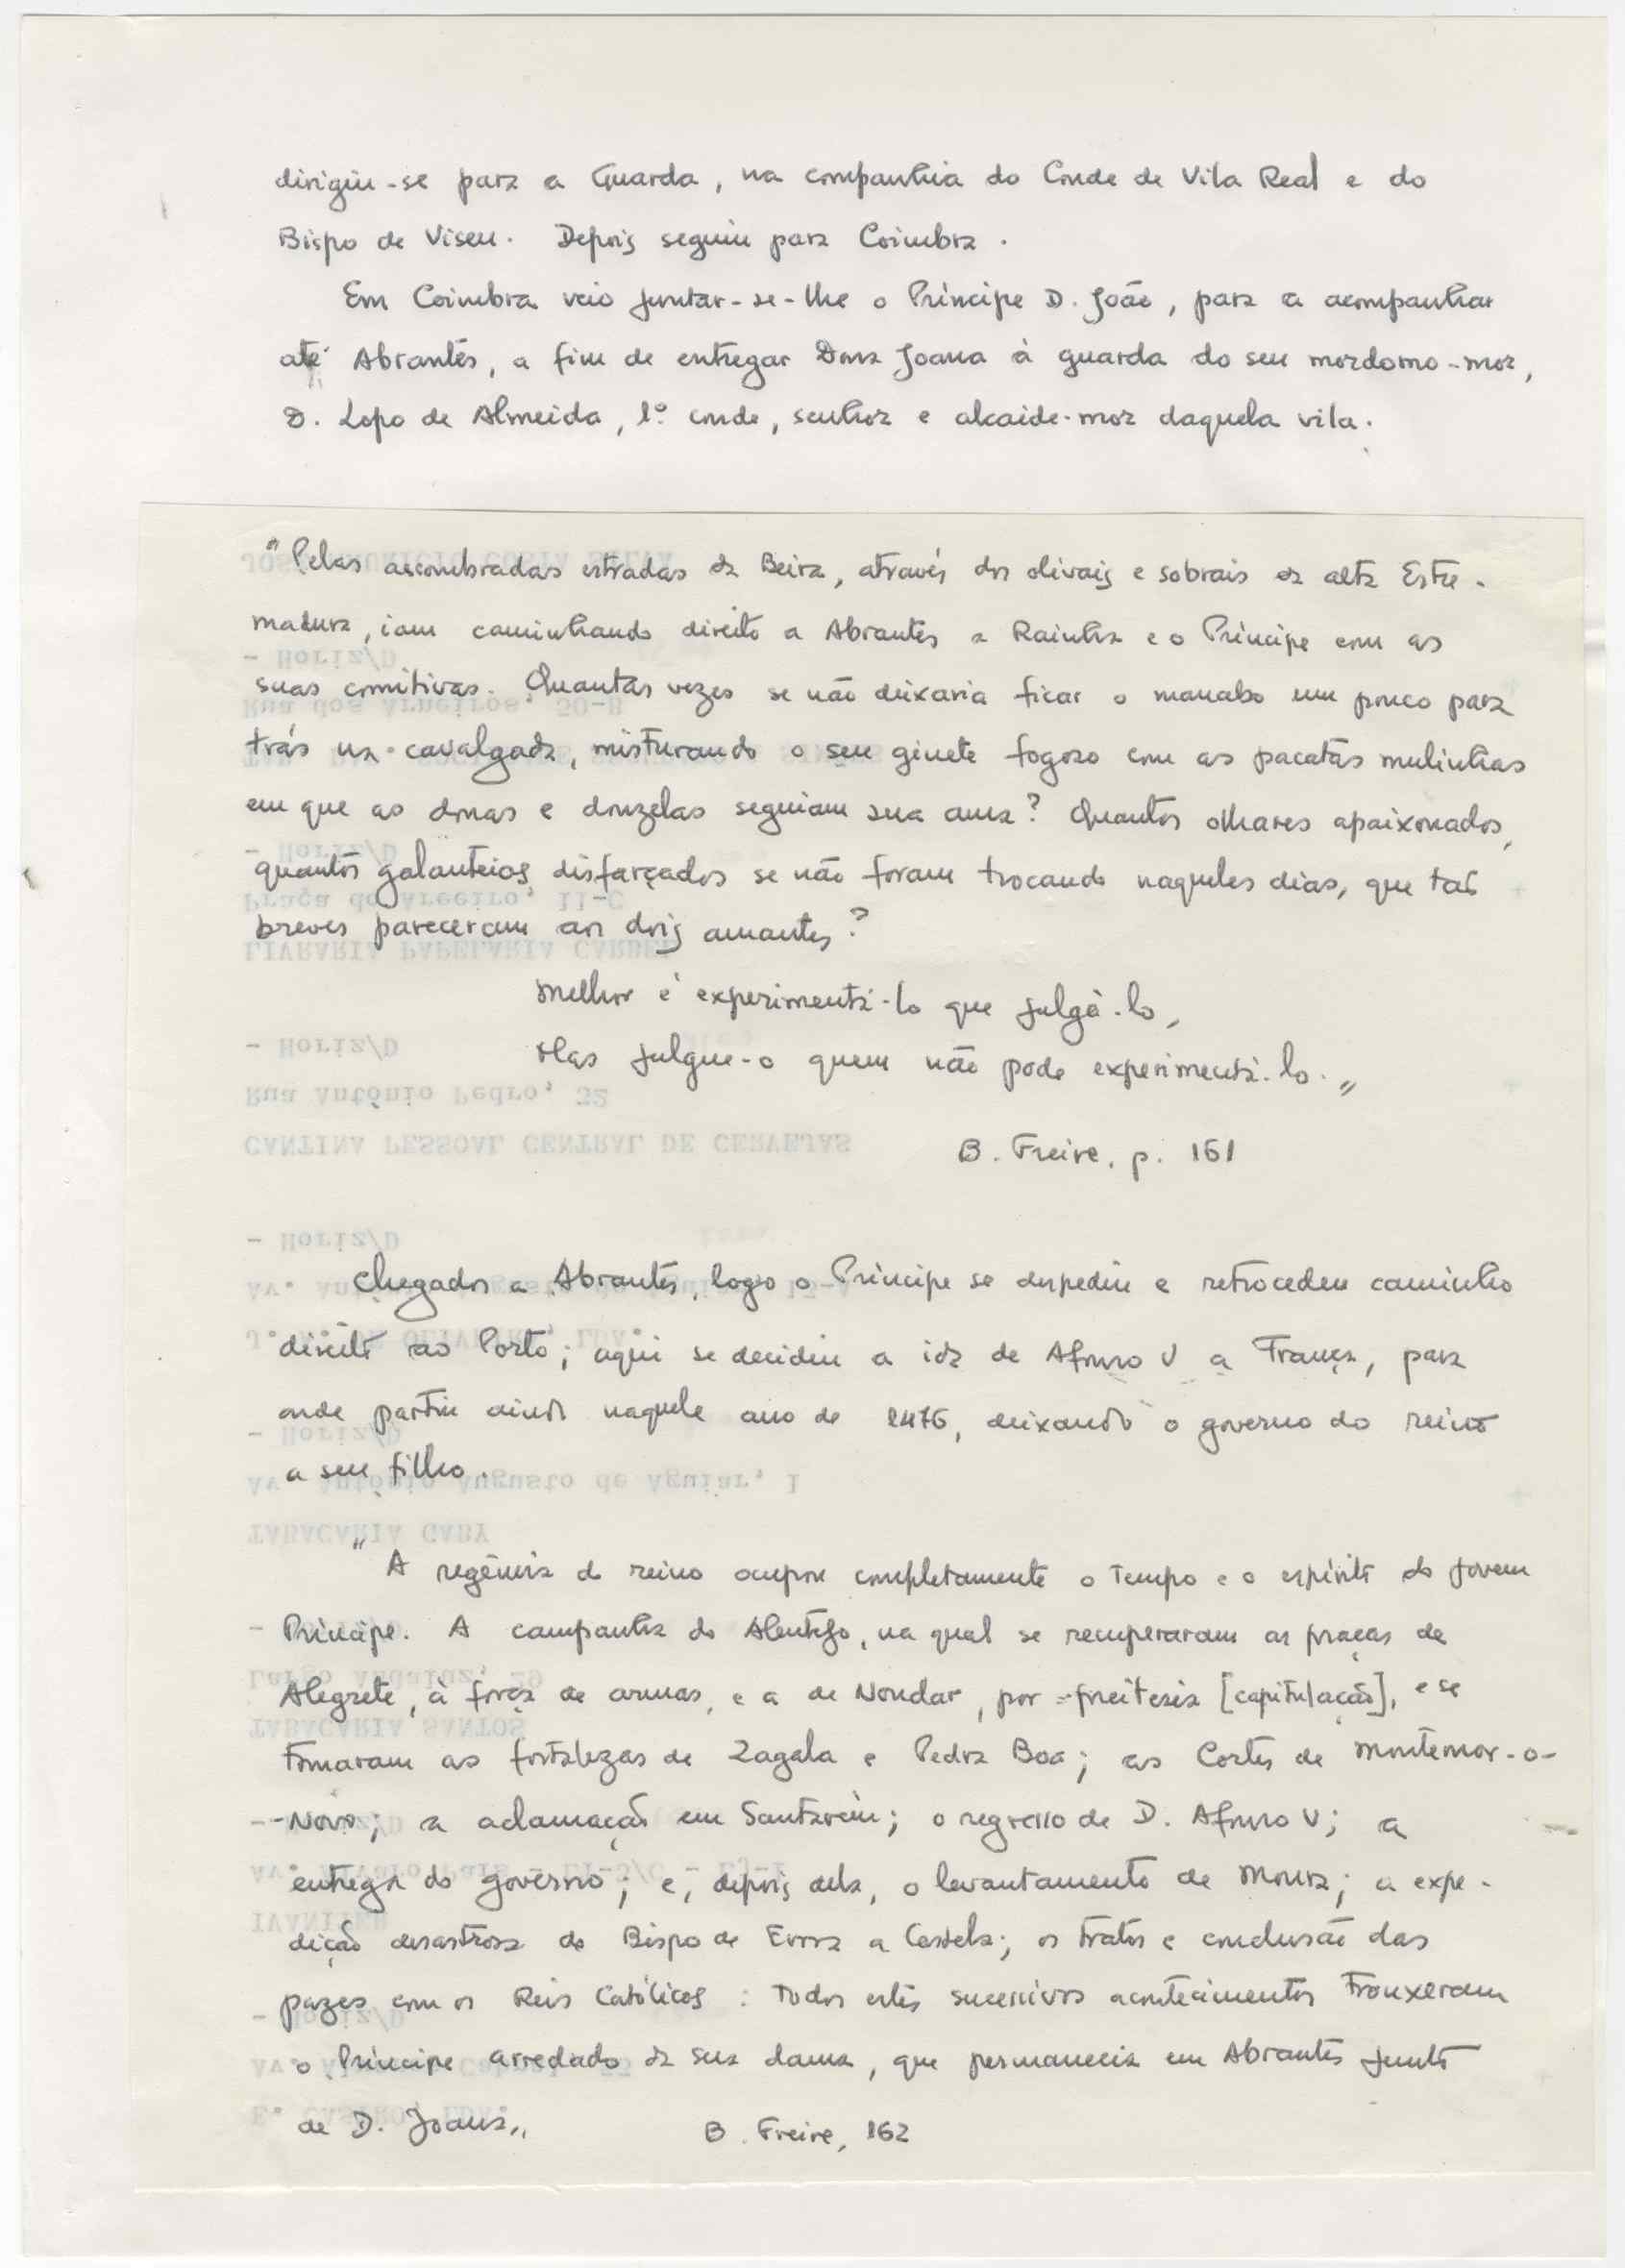 dirigiu-se para a Guarda, na companhia do Conde de Vila Real e do
Bispo de Viseu. Depois seguiu para Coimbra.
Em Coimbra veio juntar-se-lhe o Príncipe D. João, para a acompanhar
até Abrantes, a fim de entregar Dona Joana à guarda do seu mordomo-mor,
D. Lopo de Almeida, 1º conde, senhor e alcaide-mor daquela vila.
"Pelas assombradas estradas da Beira, através dos olivais e sobrais da alta Estre-
madura, iam caminhando direito a Abrantes a Rainha e o Príncipe com as
suas comitivas. Quantas vezes se não deixaria ficar o mancebo um pouco para
trás na cavalgada, misturando o seu ginete fogoso com as pacatas mulinhas
em que as donas e donzelas seguiam sua ama? Quantos olhares apaixonados,
quantos galanteios disfarçados se não foram trocando naqueles dias, que tão
breves pareceram aos dois amantes?
Melhor é experimentá-lo que julgá-lo,
Mas julgue-o quem não pode experimentá-lo."
B. Freire, p. 161
Chegados a Abrantes, logo o Príncipe se despediu e retrocedeu caminho
direito ao Porto; aqui se decidiu a ida de Afonso V a França, para
onde partiu ainda naquele ano de 1476, deixando o governo do reino
a seu filho.
"A regência do reino ocupou completamente o tempo e o espírito do jovem
Príncipe. A campanha do Alentejo, na qual se recuperaram as praças de
Alegrete, à força de armas, e a de Noudar, por preitesia [capitulação], e se
tomaram as fortalezas de Zagala e Pedra Boa; as Cortes de Montemor-o-
-Novo; a aclamação em Santarém; o regresso de D. Afonso V; a
entrega do governo; e, depois dela, o levantamento de Moura; a expe-
dição desastrosa do Bispo de Évora a Castela; os tratos e conclusão das
pazes com os Reis Católicos: todos estes sucessivos acontecimentos trouxeram
o Príncipe arredado da sua dama, que permanecia em Abrantes junto
de D. Joana"
B. Freire, 162